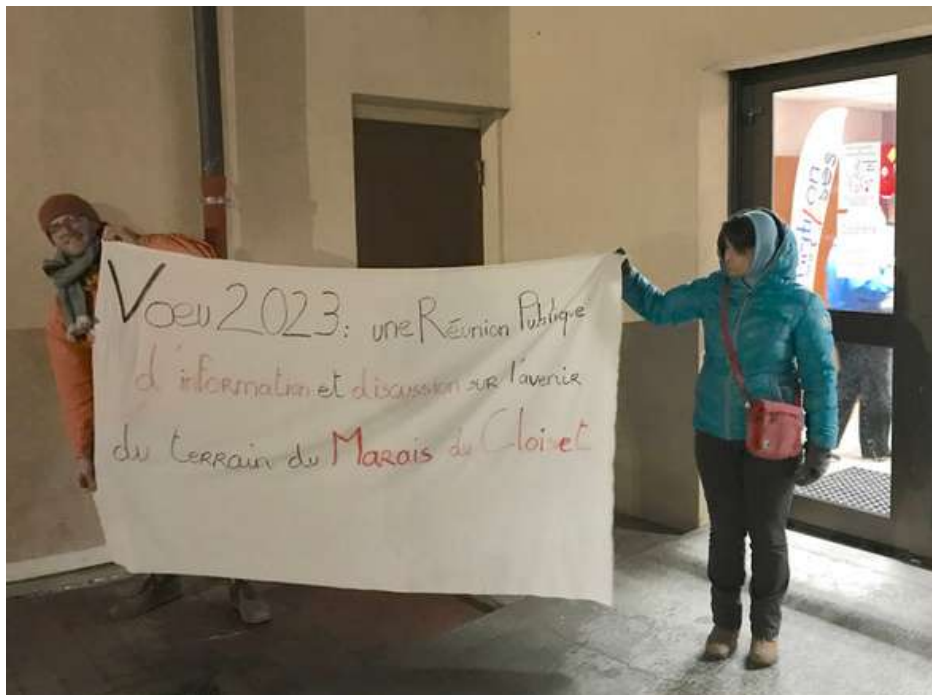 Voeu 2023: une Réunion Publique
d'information et discussion sur l'avenir
du terrain du Marais du Cloiset